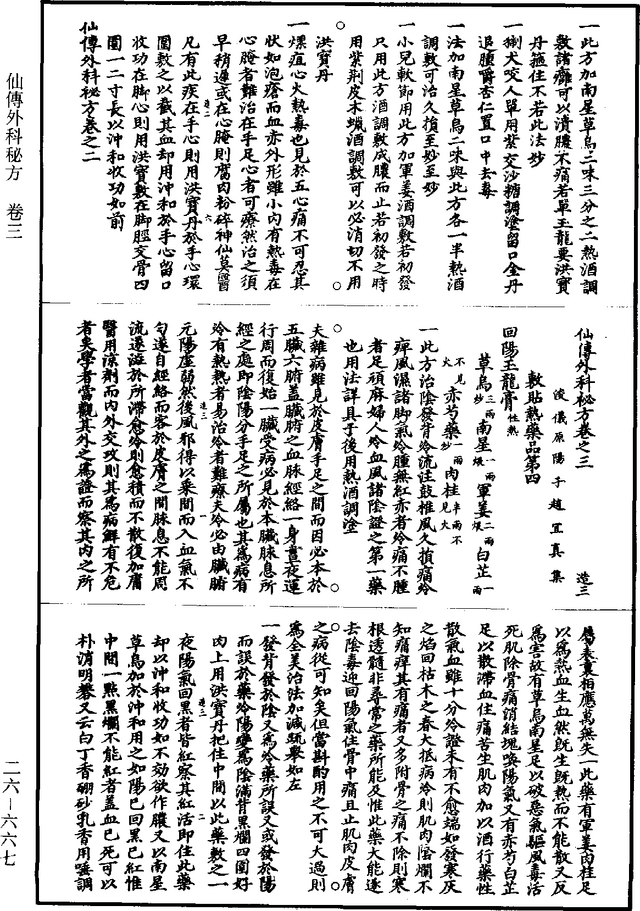 仙傳外科秘方　卷三
一此方加南星草烏二味三分之二熱酒調
敷諸癰可以潰膿不痛若單玉龍要洪寶
丹箍住不若此法妙
一猘犬咬人單用紫交沙糖調塗留口金丹
追腫嚼杏仁置口中去毒
一法加南星草烏二味與此方各一半熱酒
調敷可治久損至妙至妙
一小兒軟節用此方加軍姜酒調敷若初發
只用此方酒調敷成膿而止若初發之時
用紫荆皮木蠟酒調敷可以必消切不用
洪寶丹
一㾦疽心火熱毒也見於五心痛不可忍其
狀如泡瘡而血赤外形雖小內有熱毒在
心腌者難治在手足心者可療然治之須
早稍遲或在心腌則腐肉粉碎神仙莫醫
凡有此疾在手心則用洪寶丹於手心環
圍敷之以截其血却用沖和於手心留口
收功在脚心則用洪寶敷在脚脛交骨四
圍一二寸長以沖和收功如前
仙傳外科秘方卷之二
仙傳外科秘方卷之三　造三
浚儀原陽子趙宜真集
敷貼熱藥品第四
回陽玉龍膏性熱
草烏三兩炒南星一兩煨軍姜二兩煨白芷一兩
不見火赤芍藥一兩炒肉桂半兩不見火
一此方治陰發背冷流注鼓椎風久損痛冷
痺風濕諸脚氣冷腫無紅赤者冷痛不腫
者足頑麻婦人冷血風諸陰證之第一藥
也用法詳具于後用熱酒調塗
夫雜病雖見於皮膚手足之間而因必本於
五臟六腑蓋臟腑之血脉經絡一身晝夜運
行周而復始一臟受病必見於本臟脉息所
經之處即陰陽分手足之所屬也其爲病有
冷有熱熱者易治冷者難療夫冷必由臟腑
元陽虛弱然後風邪得以乘間而入血氣不
勻遂自經絡而客於皮膚之間脉息不能周
流遂溢於所滯愈冷則愈積而不散復加膚
醫用凉劑而內外交攻則其爲病鮮有不危
者矣學者當觀其外之爲證而察其內之所
屬表裏相應萬無失一此藥有軍姜肉桂足
以爲熱血生血然旣生旣熱而不能散又反
爲害故有草烏南星足以破惡氣驅風毒活
死肌除骨痛消結塊喚陽氣又有赤芍白芷
足以散滯血住痛苦生肌肉加以酒行藥性
散氣血雖十分冷證未有不愈端如發寒灰
之焰回枯木之春大抵病冷則肌肉陰爛不
知痛痺其有痛者又多附骨之痛不除則寒
根透髓非尋常之藥所能及惟此藥大能逐
去陰毒迎回陽氣住骨中痛且止肌肉皮膚
之病從可知矣但當斟酌用之不可大過則
爲全美治法加減疏舉如左
一發背發於陰又爲冷藥所誤又或發於陽
而誤於藥冷陽變爲陰滿背黑爛四圍好
肉上用洪寶丹把住中間以此藥敷之一
夜陽氣回黑者皆紅察其紅活即住此藥
却以沖和收功如不効欲作膿又以南星
草烏加於沖和用之如陽已回黑已紅惟
中間一點黑爛不能紅者蓋血已死可以
朴消明礬又云白丁香硼砂乳香用唾調
二六－六六七